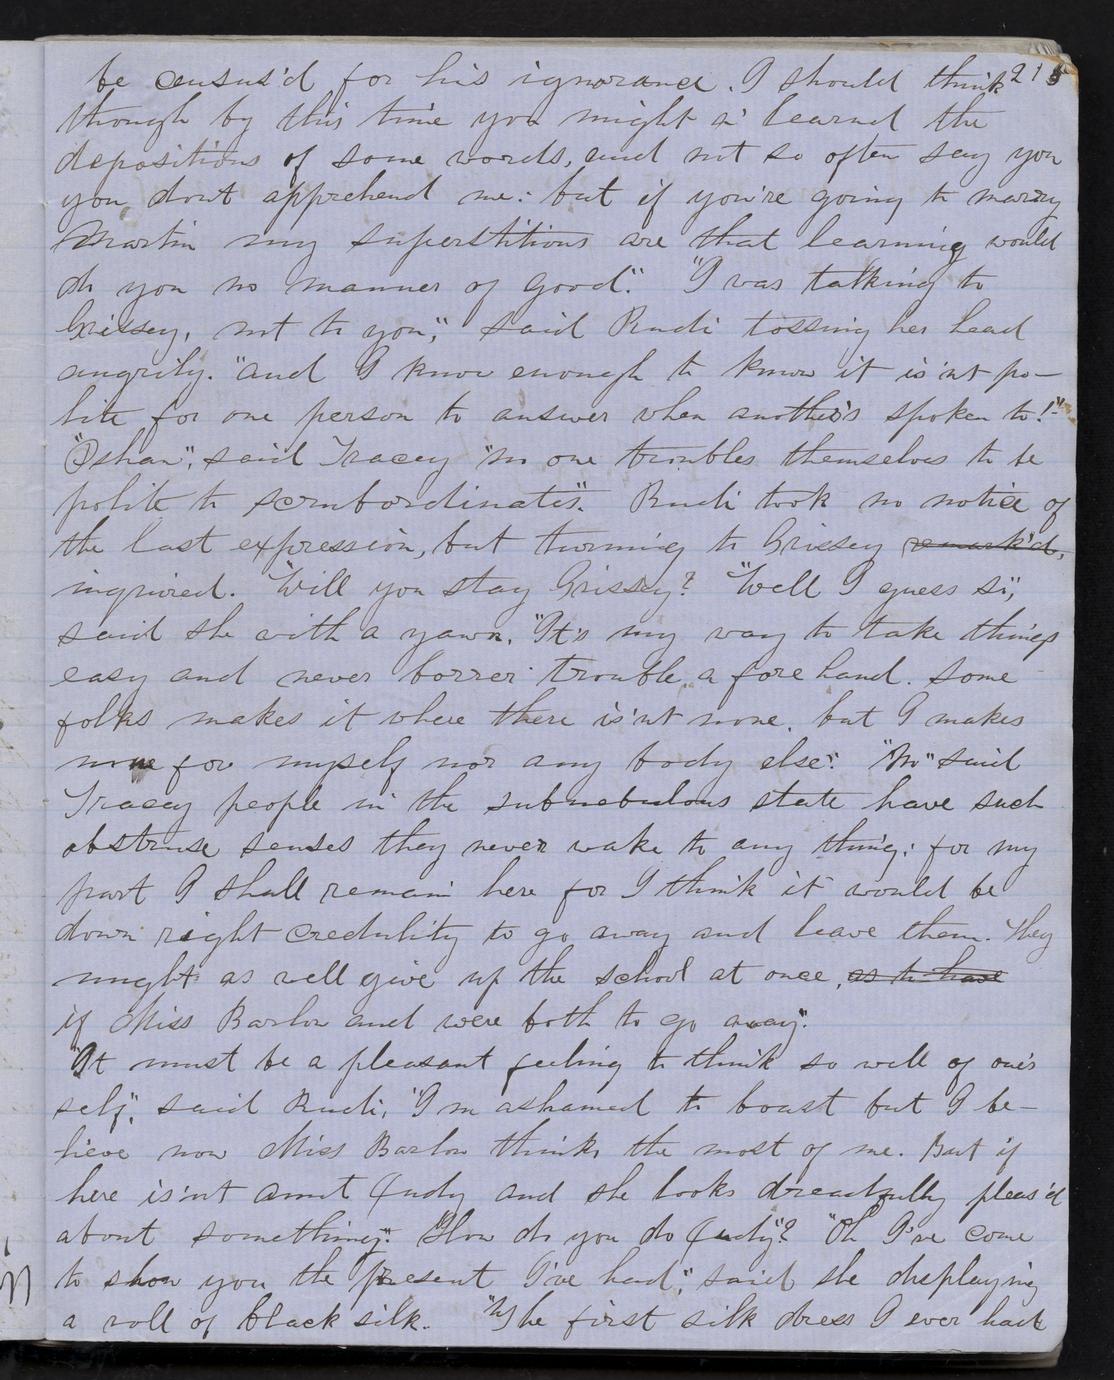 215
be census'd for his ignorance. I should think
though by this time you might a' learnd the
depositions of some words, and not so often say you
you dont apprehend me: but if you're going to marry
Martin my superstitions are that learning would
do you no manner of good." "I was talking to
Grissey, not to you," said Rudi tossing her head
angrily. "and I know enough to know it is'nt po-
lite for one person to answer when another's spoken to!"
"Pshaw", said Tracey "no one troubles themselves to be
polite to scrubordinates". Rudi took no notice of
the last expression, but turning to Grissey remark'd,
inquired. "Will you stay Grissey? "Well I guess so",
said she with a yawn. "It's my way to take things
easy and never borrer trouble a fore hand. Some
folks makes it where there is'nt none. but I makes
none for myself nor any body else". "No" said
Tracey people in the subnebulous state have such
abstruse senses they never wake to any thing; for my
part I shall remain here for I think it would be
down right credulity to go away and leave them. They
might as well give up the school at once, as to have
if Miss Barlow and were both to go away".
"It must be a pleasant feeling to think so well of one's
self", said Rudi, "I'm ashamed to boast but I be-
lieve now Miss Barlow thinks the most of me. But if
here is'nt aunt Judy and she looks dreadfully pleas'd
about something". "How do you do Judy"? "Oh I've come
to show you the present I've had", said she displaying
a roll of black silk. "The first silk dress I ever had